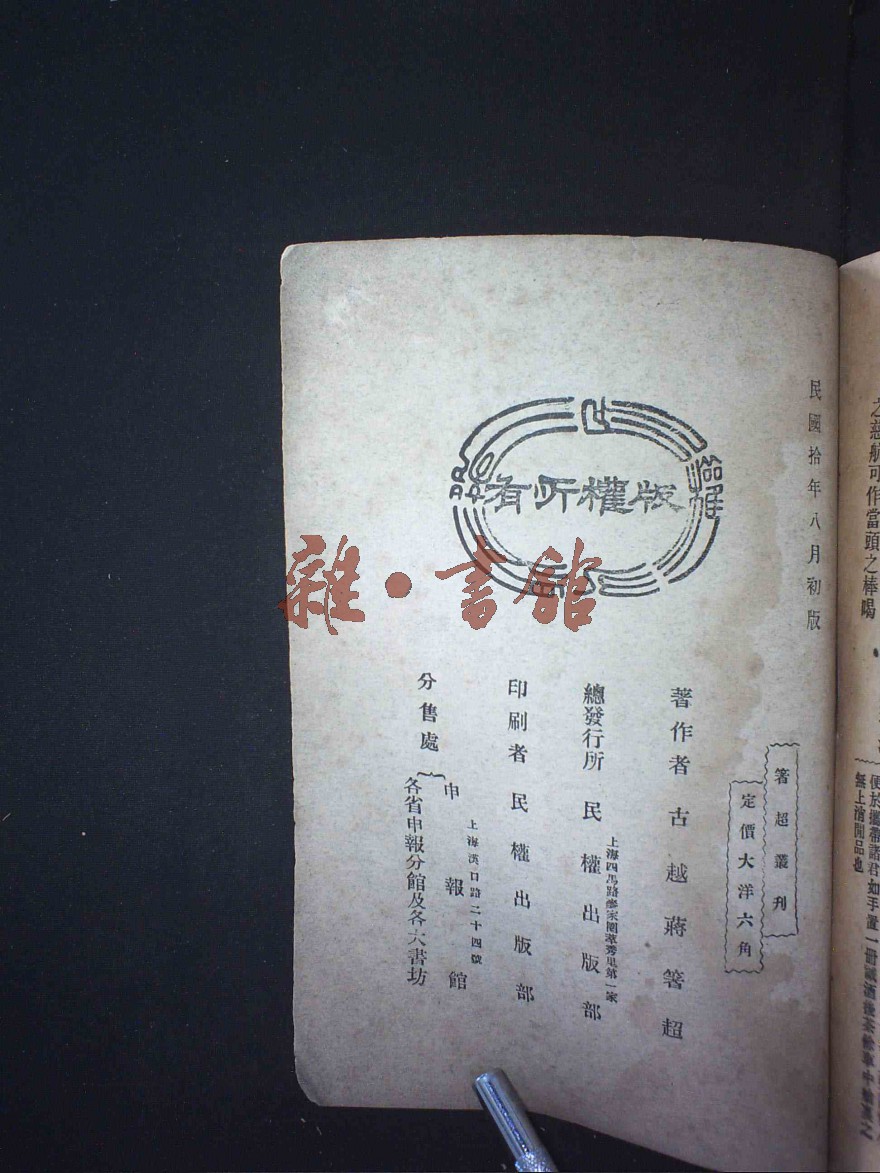 之慈航可作當頭之棒喝
便於攜帶諸君如手置一冊
無上消閒品也
民國拾年八月初版
箸超叢刊
定價大洋六角
版權所有
著作者 古越蔣箸超
總發行所 民權出版部
上海四馬路
第一家
印刷者 民權出版部
分售處
上海漢口路二十四號
申報館
各省申報分館及各大書坊
雜·書館